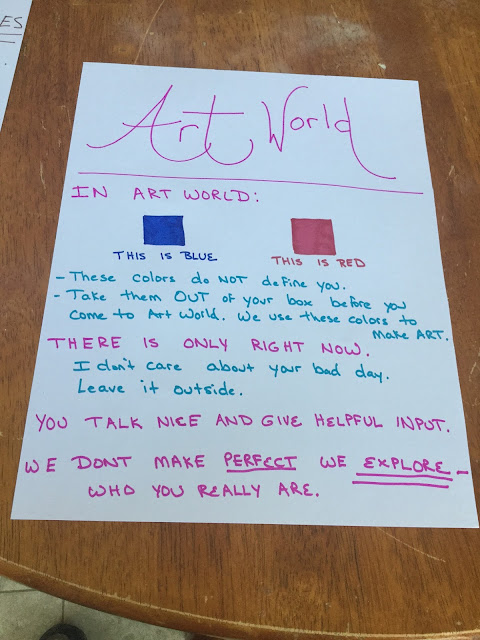 ES
Art World
IN ART WORLD:
THIS IS BLUE THIS IS RED
- These colors do NOT define you.
- Take them OUT of your box before you
come to Art World. We use these colors to
make ART.
THERE IS ONLY RIGHT NOW.
I don't care about your bad day.
Leave it outside.
YOU TALK NICE AND GIVE HELPFUL INPUT.
WE DONT MAKE PERFECT WE EXPLORE -
WHO YOU REALLY ARE.